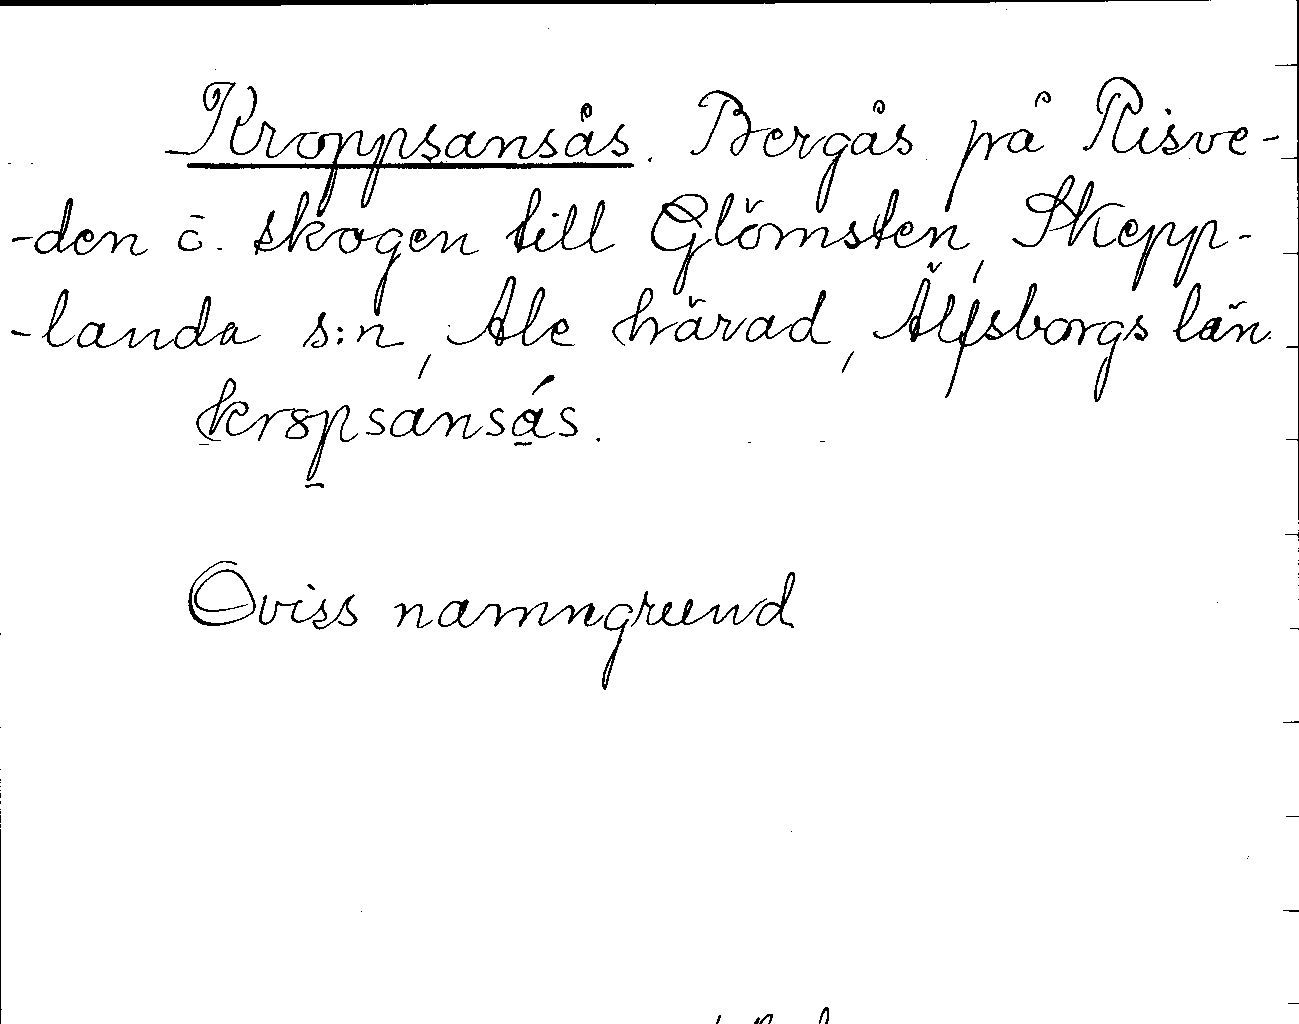 Kroppsansås. Bergås på Risve-
-den i. skogen till Glömsten, Skepp-
-landa s:n, Ale härad, Älfsborgs län.
Oviss namngrund